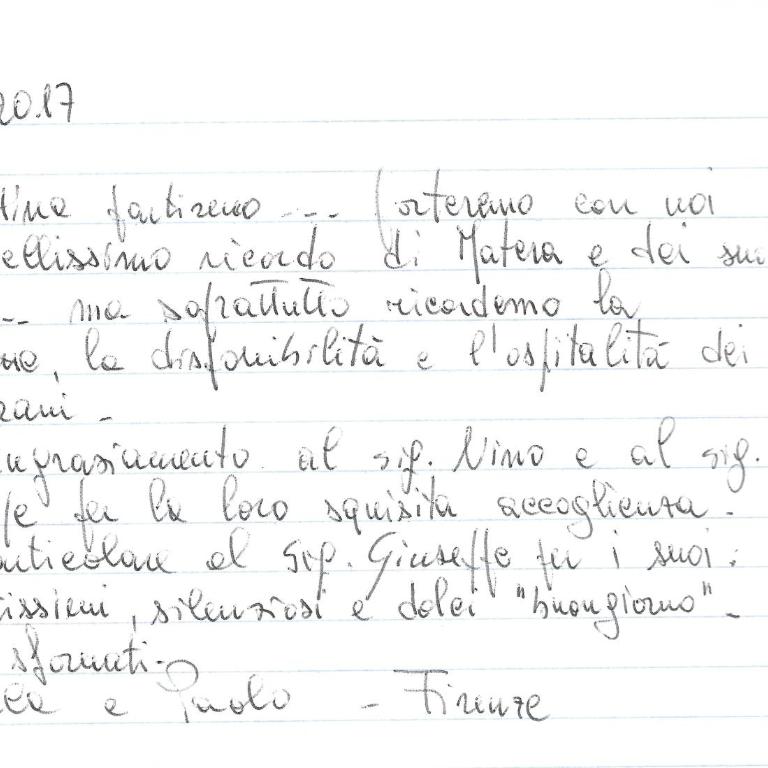 20.17
ttina partiremo --- porteremo con noi
ellissimo ricordo di Matera e dei suoi
-- ma soprattutto ricordemo la
ne, la disponibilità e l'ospitalità dei
rani -
ngraziamento al sig. Nino e al sig.
pe per la loro squisita accoglienza -
articolare al Sig. Giuseppe per i suoi:
issimi, silenziosi e dolci "buongiorno" -
sfornati -
lla e Paolo - Firenze